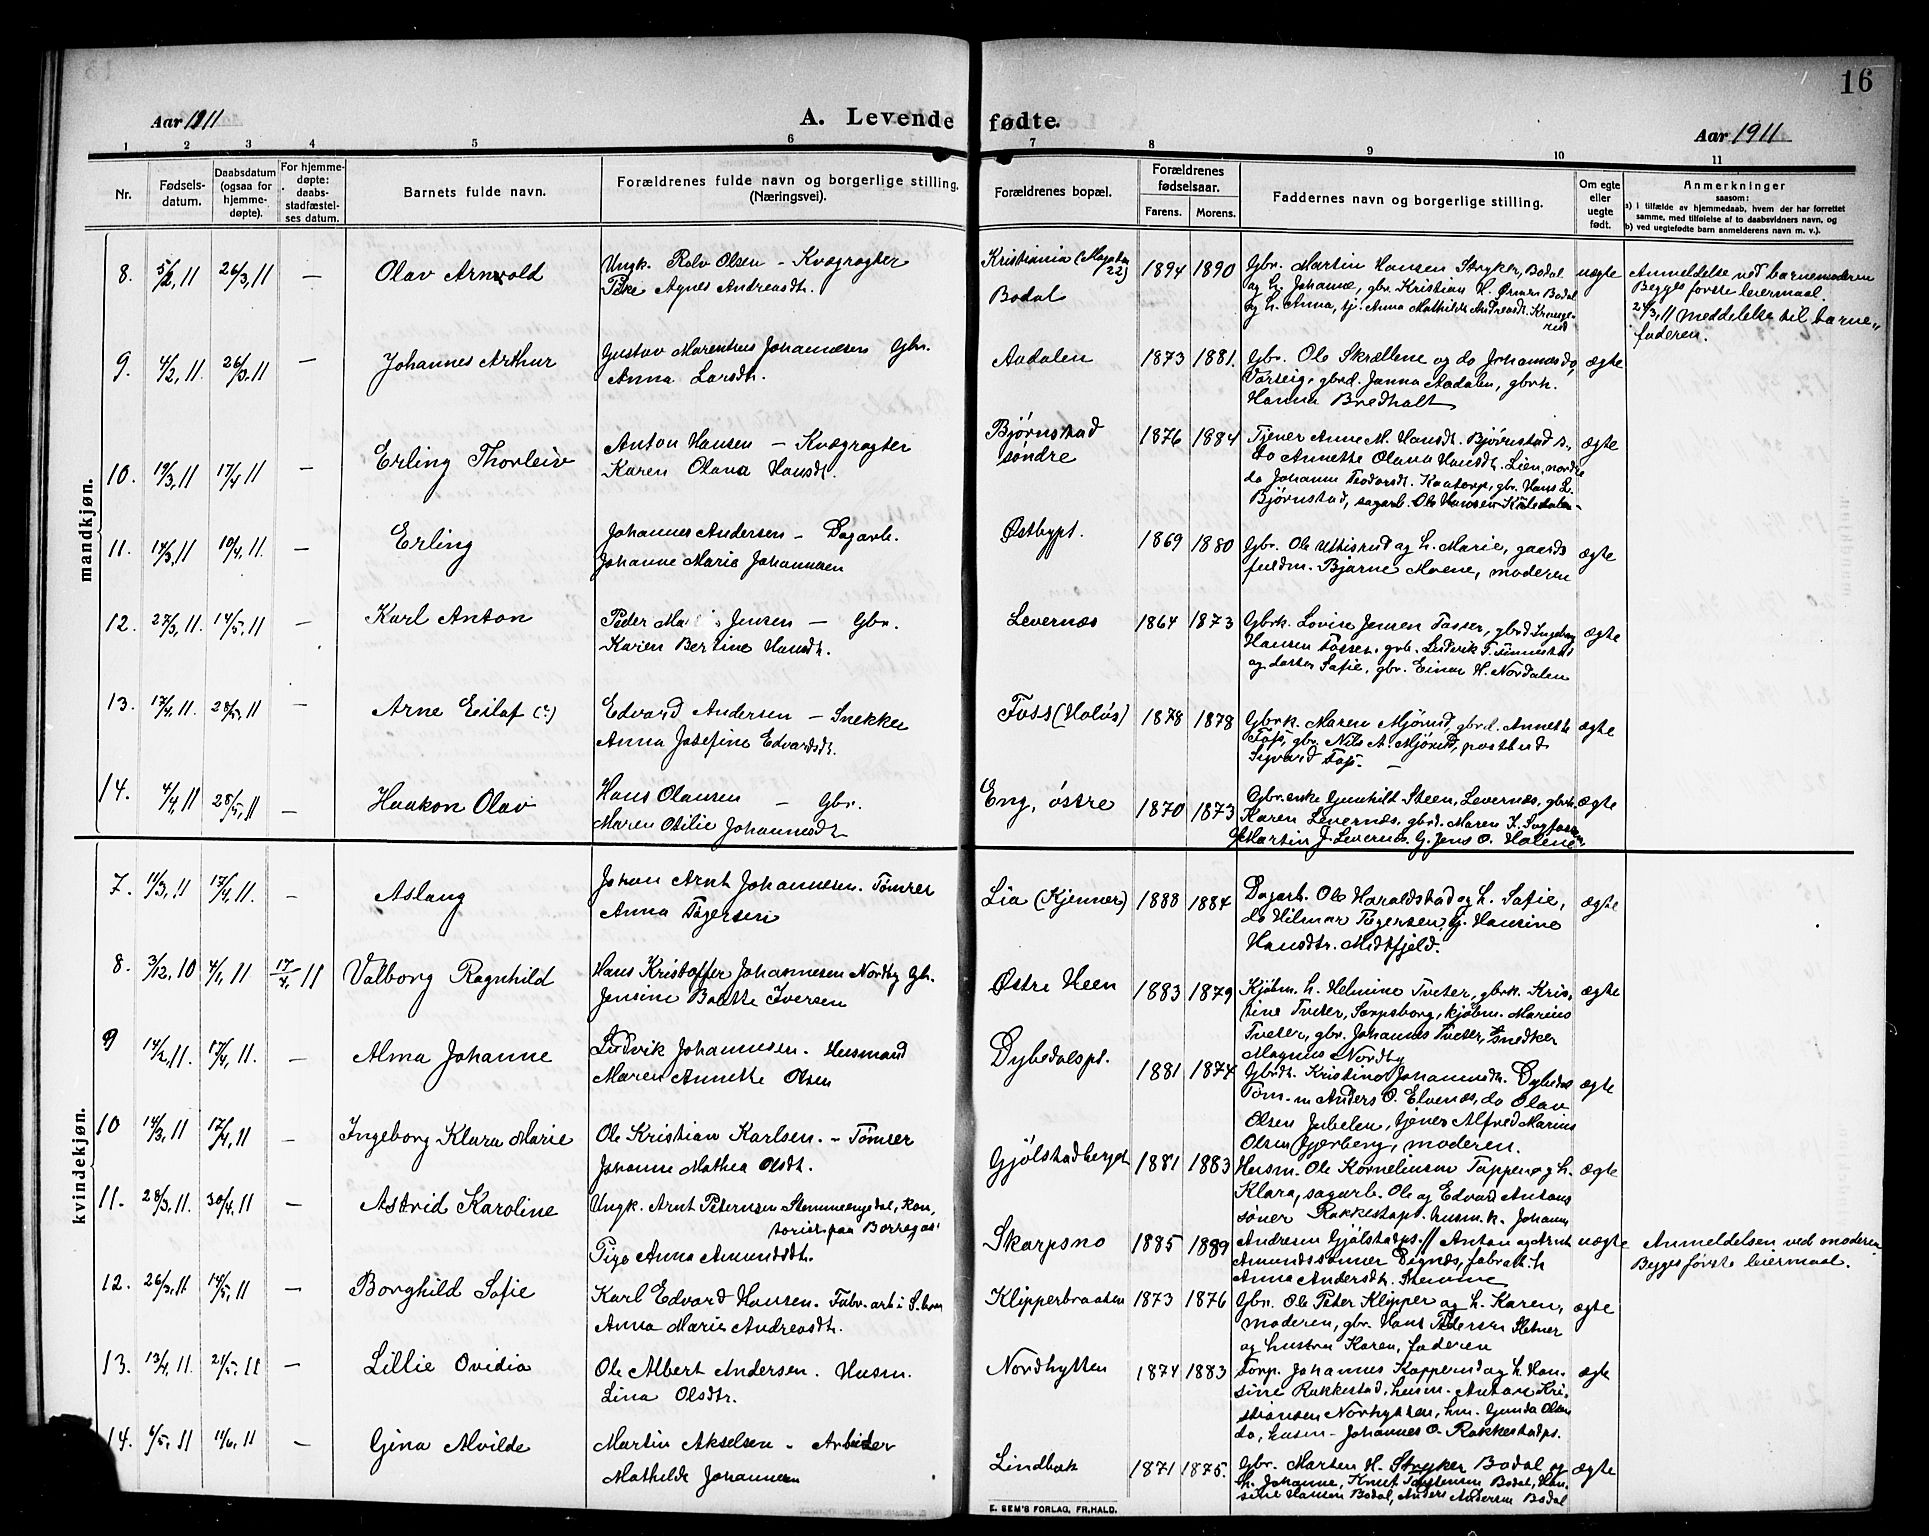 16
Aar 1911
A. Levende fødte.
Aar 1911
1 2 3 4 5 6 7 8 9 10 11
Nr.
Fødsels-
datum.
Daabsdatum
(ogsaa for
hjemme-
døpte).
For hjemme-
døpte:
daabs-
stadfæstel-
ses datum.
Barnets fulde navn.
Forældrenes fulde navn og borgerlige stilling.
(Næringsvei).
Forældrenes bopæl.
Forældrenes
fødselsaar.
Farens. Morens.
Faddernes navn og borgerlige stilling.
Om egte
eller
uegte
født.
Anmerkninger
saasom:
a) i tilfælde av hjemmedaab, hvem der har forrettet
samme, med tilføielse af to daabsvidners navn, og
b) ved uegtefødte barn anmelderens navn m. v.).
mandkjøn.
8. 5/2, 11 26/3, 11 — Olav Arnvold
Ungk. Rolv Olsen — Kvægrøgter
Pike Agnes Andreasdt.
Kristiania
22)
Bodal
1894 1890
Gbr. Martin Hansen Stryker, Bodal
og h. Johanne, gbr. Kristian H. Bodal
og h. Anna, tj. Anna Mathilde Andreasdt.
uægte
Anmeldelse ved barnemoderen
Begges første leiermaal.
24/3, 11 Meddelelse til barne-
faderen.
9. 4/2, 11. 26/3, 11 — Johannes Arthur
Gustav Marenius Johannesen Gbr.
Anna Larsdt.
Aadalen
1873 1881.
Gbr. Ole Skrællene og do Johannes do,
Varseig, gbrd. Janna Aadalen, gbrk.
Hanna Bredholt
ægte
10. 19/3, 11 17/4 11 — Erling Thorleiv
Anton Hansen — Kvægrøgter
Karen Olava Hansdt.
Bjørnstad
søndre
1876 1884
Tjener Anne M. Hansdt. Bjørnstad s.,
do Annette Olava Hansdt. Lien, nordre
do Johanne Teodorsdt. Kaatorp, gbr. Hans L.
Bjørnstad, sagarb. Ole Hansen
ægte
11. 14/3, 11 10/4, 11. — Erling
Johannes Andersen — Dagarb.
Johanne Marie Johannesen
Østbypt.
1869 1880
Gbr. Ole Uttisrud og h. Marie, gaards
fuldm. Bjarne Moene, moderen
ægte
12. 27/3, 11. 14/5, 11 — Karl Anton
Peder Jensen — Gbr.
Karen Bertine Hansdt.
Levernæs
1864 1873
Gbrk. Lovise Jensen Tasser, gbrd Ingeborg
Hansen gbr. Ludvik T.
og datter Sofie, gbr. Einar H. Nordalen
ægte
13. 17/4, 11. 28/5, 11 — Arne Eilaf
Edvard Andersen — Snekker
Anna Josefine Edvardsdt.
Foss (Holøs)
1878 1878
Gbrk. Maren Mjørud, gbrd. Annette
Foss, gbr. Nils A. Mjørud, postbud
Sigvard Foss. —
ægte
14. 4/4, 11 28/5, 11 — Haakon Olav
Hans Olausen — Gbr.
Maren Otilie Johannesdt.
Eng, østre
1870 1873
Gbr.enke Gunhild Steen, Levernæs, gbrk.
Karen Levernæs, gbrd. Maren K.
Martin J. Levernæs. G. Jens O. Holene
ægte
kvindekjøn.
7. 11/3, 11 17/4, 11. — Aslaug
Johan Arnt Johannesen. Tømrer
Anna Tøgersen
Lia (Kjenner)
1888 1884
Dagarb. Ole Haraldstad og h. Sofie,
do Hilmar Tøgersen, tj. Hansine
Hansdtr. Midtfjeld.
ægte
8. 3/12, 10 4/1, 11 17/4, 11 Valborg Ragnhild
Hans Kristoffer Johannesen Nordby Gbr.
Jensine Bolette Iversen
Østre Heen
1883 1879
Kjøbm. h. Helmine Tveter, gbrk. Kris-
tine Tveter, Sarpsborg, kjøbm. Marius
Tveter, gbr. Johannes Tveter, snedker
Magnus Nordby
ægte
9 14/2, 11. 17/4, 11. — Alma Johanne
Ludvik Johannesen. Husmand
Maren Annette Olsen
Dybedalspt.
1881 1874
Gbrdt. Kristine Johannesdt. Dybedal
Tøm. m Anders O. Elvenæs, do Olav
Olsen Jubelen, tjener Alfred Marius
Olsen Bjerberg, moderen.
ægte
10 14/3, 11 17/4, 11 — Ingeborg Klara Marie
Ole Kristian Karlsen. — Tømrer
Johanne Mathea Olsdt.
Gjølstadberget
1881 1883
Husm. Ole Kornelinsen Tappen og h.
Klara, sagarb. Ole og Edvard Antons
sønner Rakkestapt. husm. k. Johanne
Andresen Gjølstadpt.
ægte
11. 28/3, 11. 30/4, 11 — Astrid Karoline
Ungk. Arnt Petersen Stemmeengedal, kon-
torist paa Borregaa
Pige Anna Amundsdt.
Skarpsno
1885 1889
Anton og Arnt
Amundssønner Dignæs, fabrab. h
Anna Andersdt. Stemme
uægte
Anmeldelsen ved moderen
Bygges første leiermaal.
12. 26/3, 11 14/5, 11 — Borghild Sofie
Karl Edvard Hansen. Fabr.arb i S.
Anna Marie Andreasdt.
Klipperbraaten
1873 1876
Gbr. Ole Peter Klipper og h. Karen,
moderen, gbr. Hans Pedersen Hetner
og hustru Karen, faderen
ægte
13. 13/4, 11. 21/5, 11 — Lillie Ovidia
Ole Albert Andersen. Husm.
Lina Olsdtr.
Nordhytten
1874 1883
Torp. Johannes Kopperud og h. Han-
sine Rakkestad, husm. Anton Kri-
stiansen Norhytten, hm. Gunda Olsen
do, husm. Johannes O. Rakkestadpt.
ægte
14. 6/5, 11 11/6, 11 — Gina Alvilde
Martin Akselsen. Arbeider
Mathilde Johannesen
Lindbæk
1871 1875.
Gbr. Marten H. Stryker Bodal og
h. Johanne, Knut Torstensen Bodal, Han-
sine Hansen Bodal, Anders Andersen Bodal
ægte
E. SEM'S FORLAG, FR.HALD.